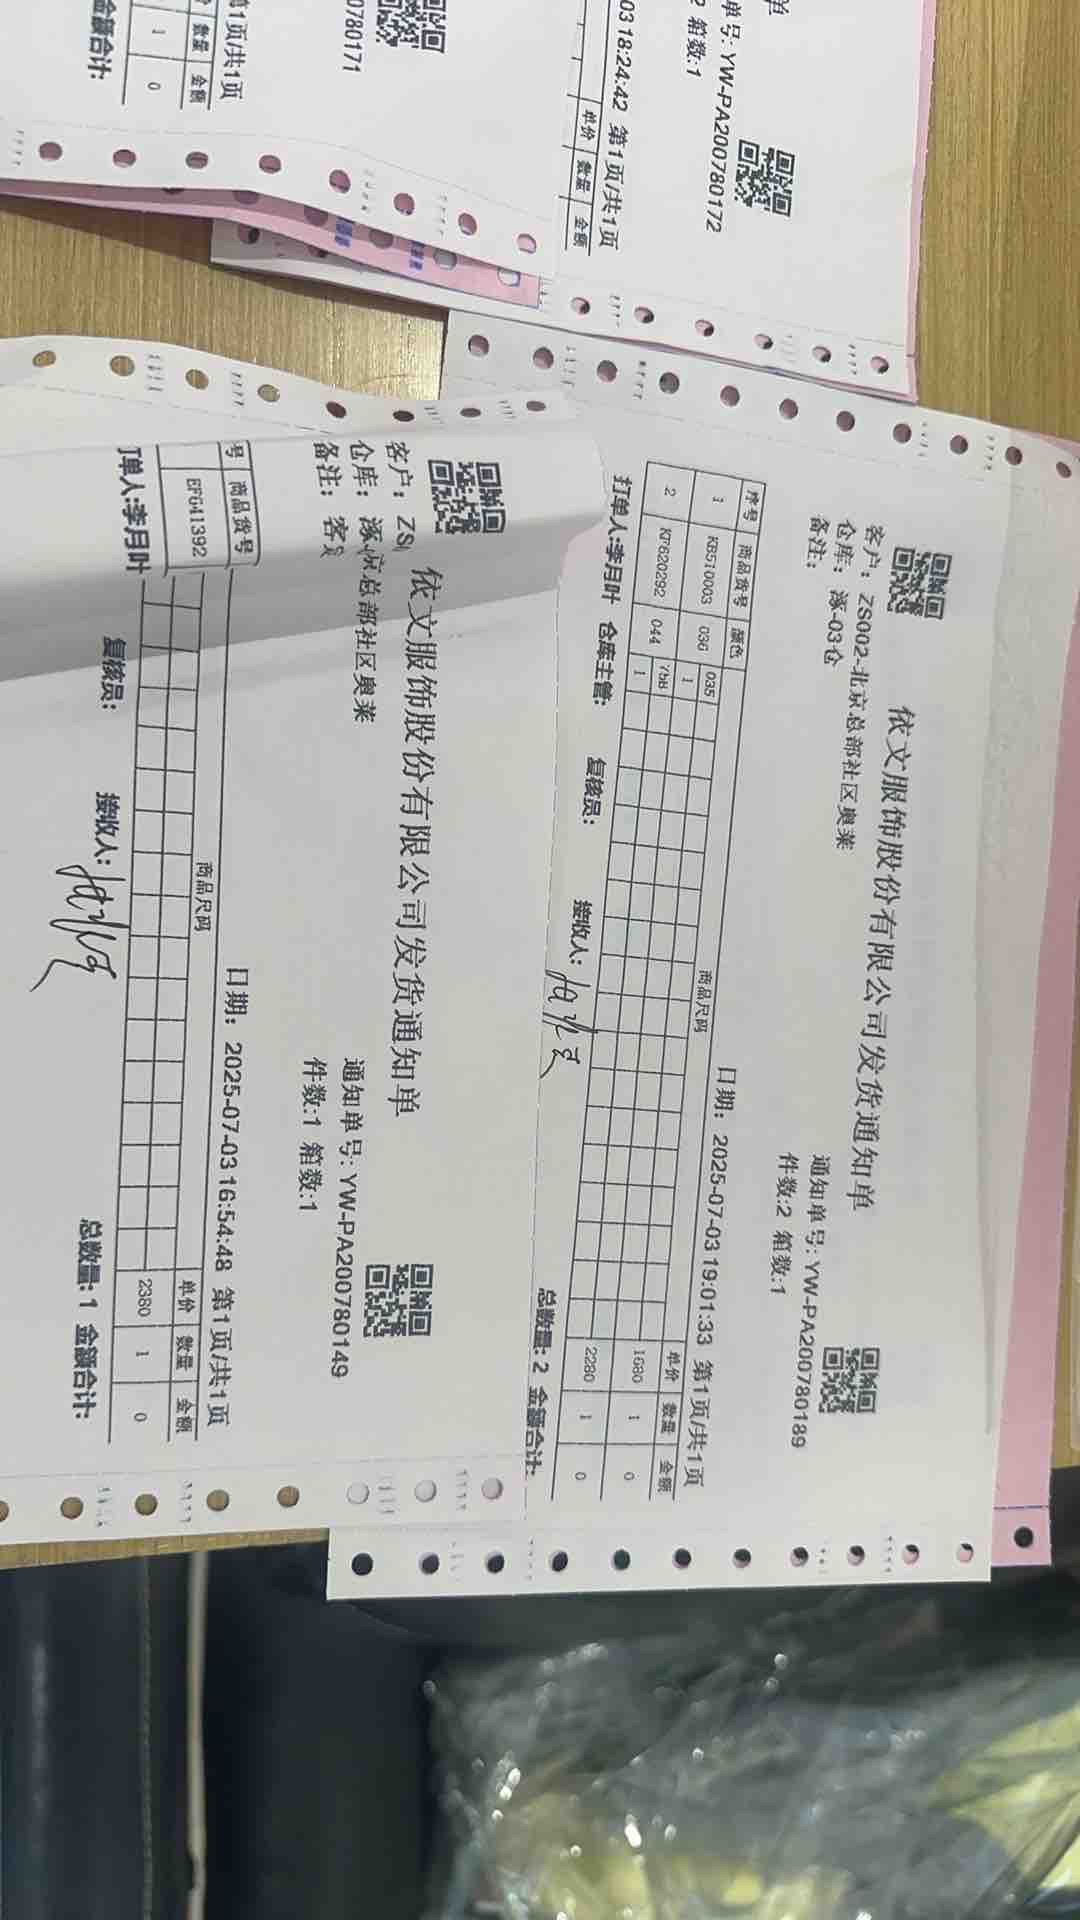 单号: YW-PA200780172
2 箱数:1
03 18:24:42 第1页/共1页
单价 数量 金额
0780171
第1页/共1页
数量 金额
1 0
金额合计:
依文服饰股份有限公司发货通知单
客户: ZS002-北京总部社区奥莱
通知单号: YW-PA200780189
仓库: 涿-03仓
件数:2 箱数:1
备注:
日期: 2025-07-03 19:01:33 第1页/共1页
序号 商品货号 颜色 商品尺码 单价 数量 金额
035
1 KB510003 036 1 1680 1 0
2 KF620292 044 1 2280 1 0
总数量: 2 金额合计:
打单人:李月叶 仓库主管: 复核员: 接收人:
依文服饰股份有限公司发货通知单
客户: ZS 京总部社区奥莱
通知单号: YW-PA200780149
仓库: 涿
件数:1 箱数:1
备注: 客
日期: 2025-07-03 16:54:48 第1页/共1页
号 商品货号 商品尺码 单价 数量 金额
EF641392 2380 1 0
总数量: 1 金额合计:
打单人:李月叶 复核员: 接收人: